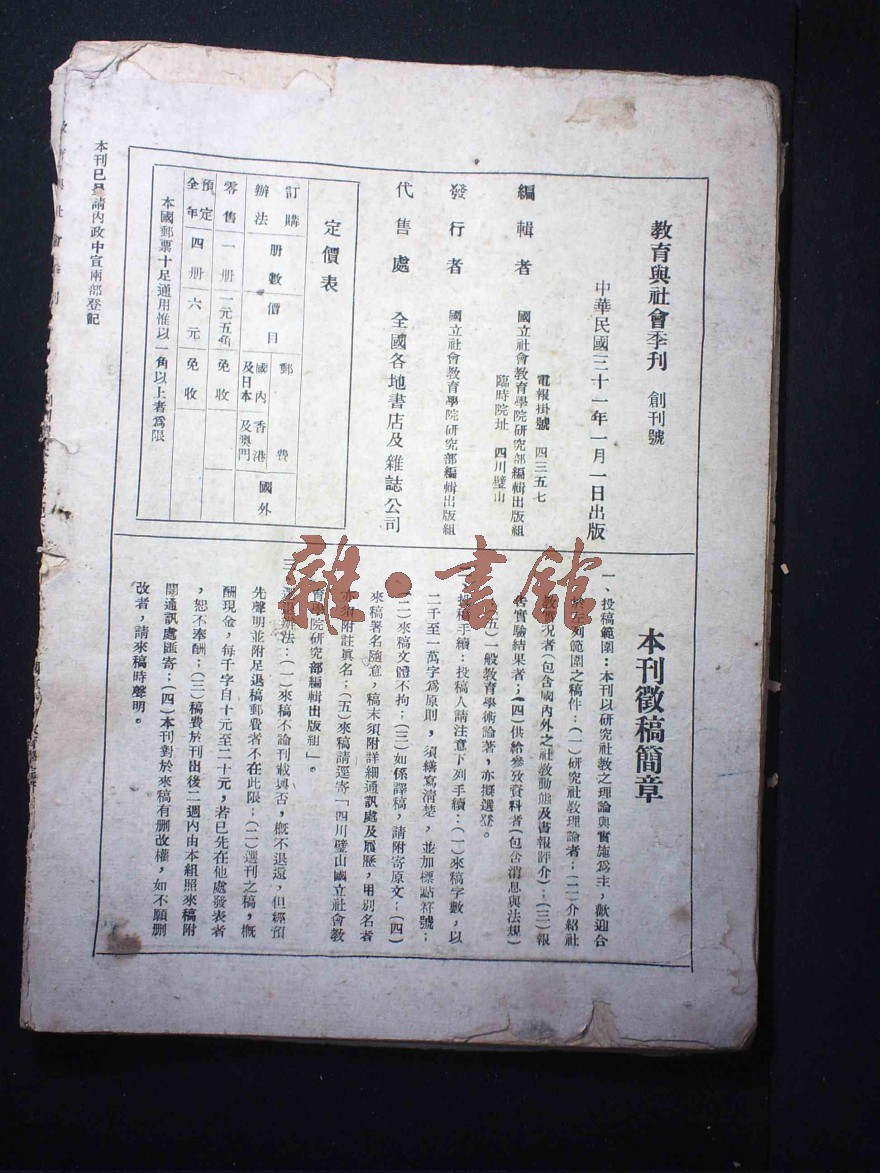 教育與社會季刊 創刊號
中華民國三十一年一月一日出版
電報掛號 四三五七
編輯者 國立社會教育學院研究部編輯出版組
臨時院址 四川璧山
發行者 國立社會教育學院研究部編輯出版組
代售處 全國各地書店及雜誌公司
定價表
訂購辦法 冊數 價目 郵費
國內及日本 香港及澳門 國外
零售 一冊 一元五角 免收
預定全年 四冊 六元 免收
本國郵票十足通用惟以一角以上者爲限
本刊已呈請內政中宣兩部登記
本刊徵稿簡章
一、投稿範圍：本刊以研究社教之理論與實施爲主，歡迎合
於左列範圍之稿件：(一)研究社教理論者；(二)介紹社
教概況者(包含國內外之社教動態及書報評介)；(三)報
告實驗結果者；(四)供給參攷資料者(包含消息與法規)
(五)一般教育學術論著，亦擬選登。
投稿手續：投稿人請注意下列手續：(一)來稿字數，以
二千至一萬字爲原則，須繕寫清楚，並加標點符號；
(二)來稿文體不拘；(三)如係譯稿，請附寄原文；(四)
來稿署名隨意，稿末須附詳細通訊處及履歷，用別名者
亦須附註眞名；(五)來稿請逕寄「四川璧山國立社會教
育學院研究部編輯出版組」。
三、選退辦法：(一)來稿不論刊載與否，概不退還，但經預
先聲明並附足退稿郵費者不在此限；(二)選刊之稿，概
酬現金，每千字自十元至二十元，若已先在他處發表者
，恕不奉酬；(三)稿費於刊出後二週內由本組照來稿附
開通訊處匯寄；(四)本刊對於來稿有刪改權，如不願刪
改者，請來稿時聲明。
雜·書館